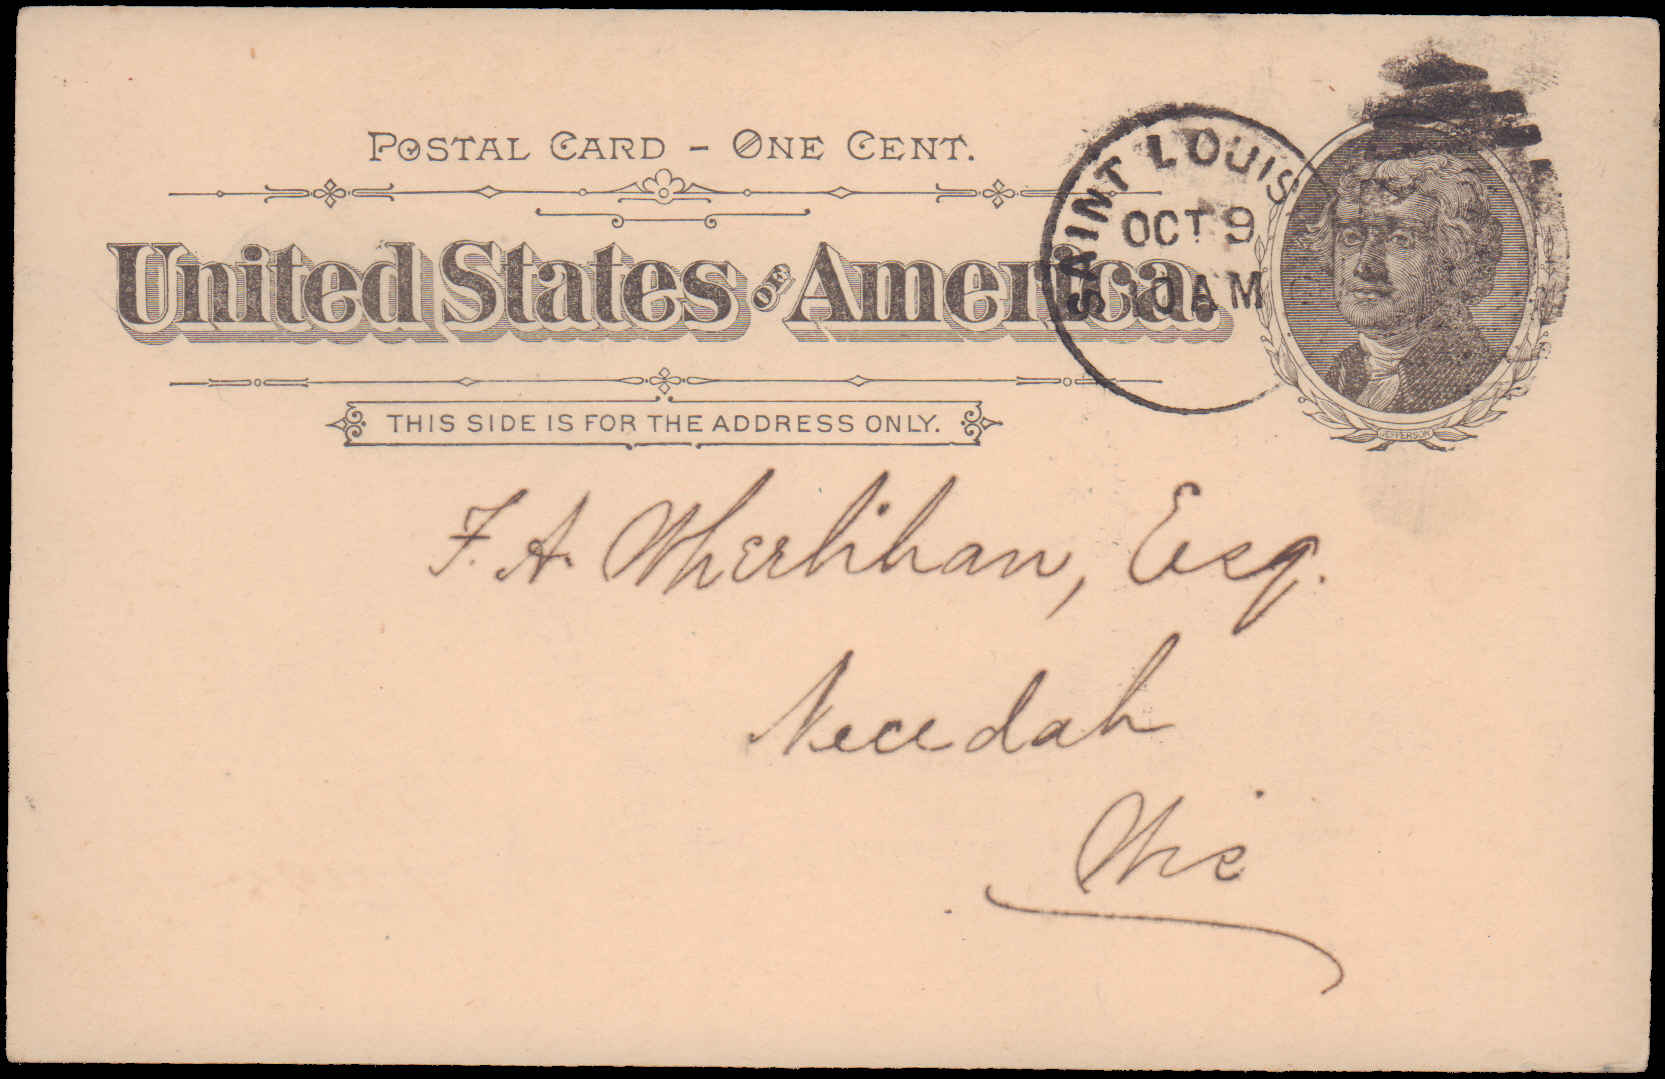 POSTAL CARD – ONE CENT.
United States OF America.
SAINT LOUIS
OCT 9
10 AM
JEFFERSON
THIS SIDE IS FOR THE ADDRESS ONLY.
F. A. Wherlihan, Esq.
Necedah
Wis